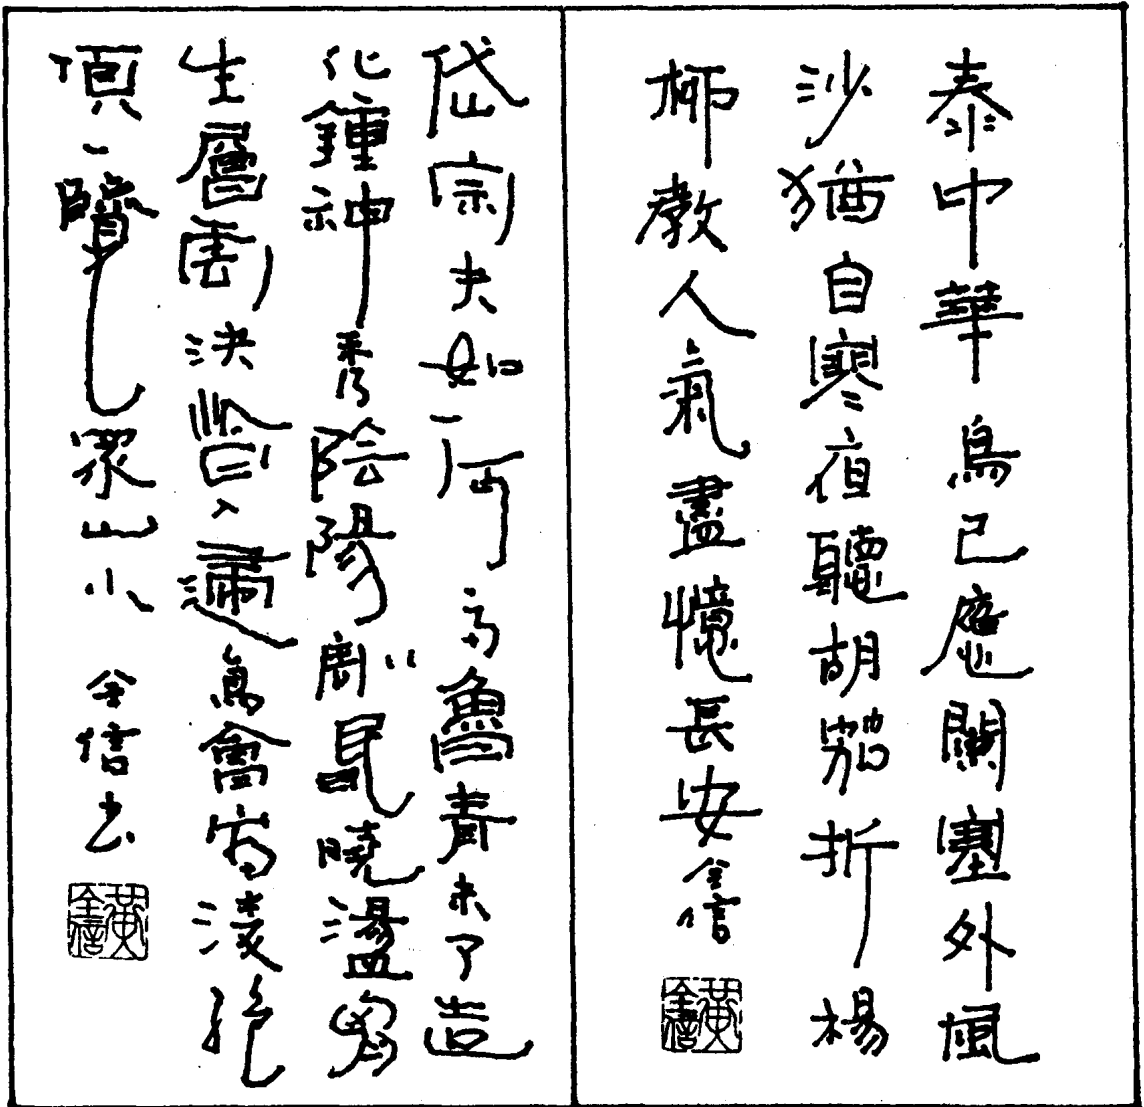 泰中華鳥已應闌塞外風
沙猶自寒夜聽胡笳折楊
柳教人氣盡憶長安金信
黃金信
岱宗夫如何齊魯青未了造
化鍾神秀陰陽割昏曉盪胸
生層雲決眥入歸鳥會當凌絕
頂一覽眾山小 金信書
黃金信